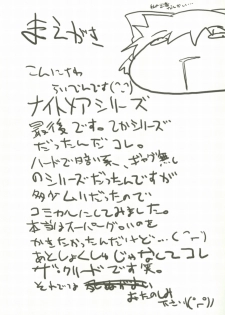 まえがき
こんにちわ
らいでんです(^_^)
ナイトメアシリーズ
最後です。てかシリーズ
だったんだコレ。
ハードで暗い系、ギャグ無し
のシリーズだったんですが
多少ムリだったので
コミカルにしてみました。
本当はスーパーグロいのを
かきたかったんだけど…
あとしょくしゅじゃなくてコレ
ザ・クリードです笑。
それでは
おたのしみ
下さい